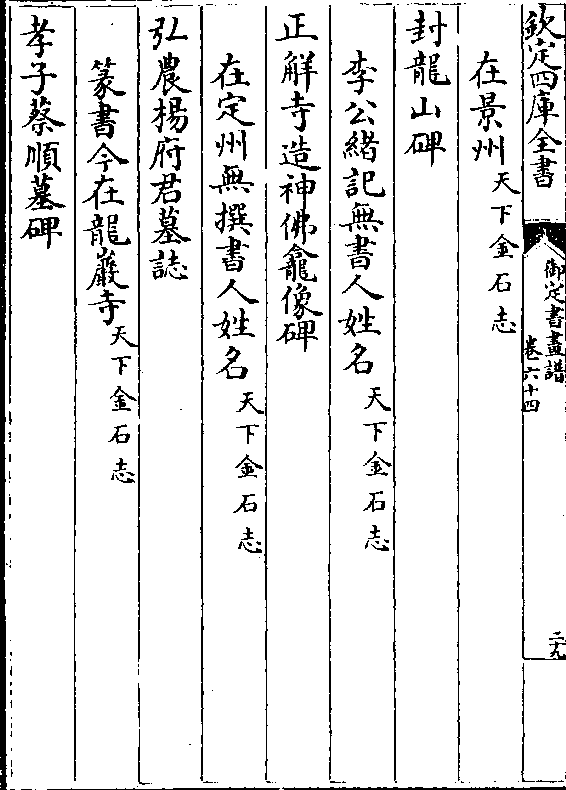 欽定四庫全書
御定書畫譜
卷六十四
二十九
在景州天下金石志
封龍山碑
李公緒記無書人姓名天下金石志
正解寺造神佛龕像碑
在定州無撰書人姓名天下金石志
弘農楊府君墓誌
篆書今在龍巖寺天下金石志
孝子蔡順墓碑